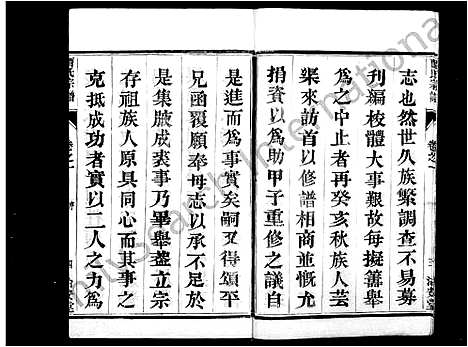 志也然世久族繁調查不易募
刊編校體大事艱故每擬籌舉
為之中止者再癸亥秋族人芸
渠來訪首以修譜相商並慨允
捐資以為助甲子重修之議自
是進而為事實矣嗣又得頌平
兄函覆願奉母志以承不足於
是集腋成裘事乃畢舉蓋立宗
存祖族人原具同心而其事之
克抵成功者實以二人之力為
氏宗譜
卷之一